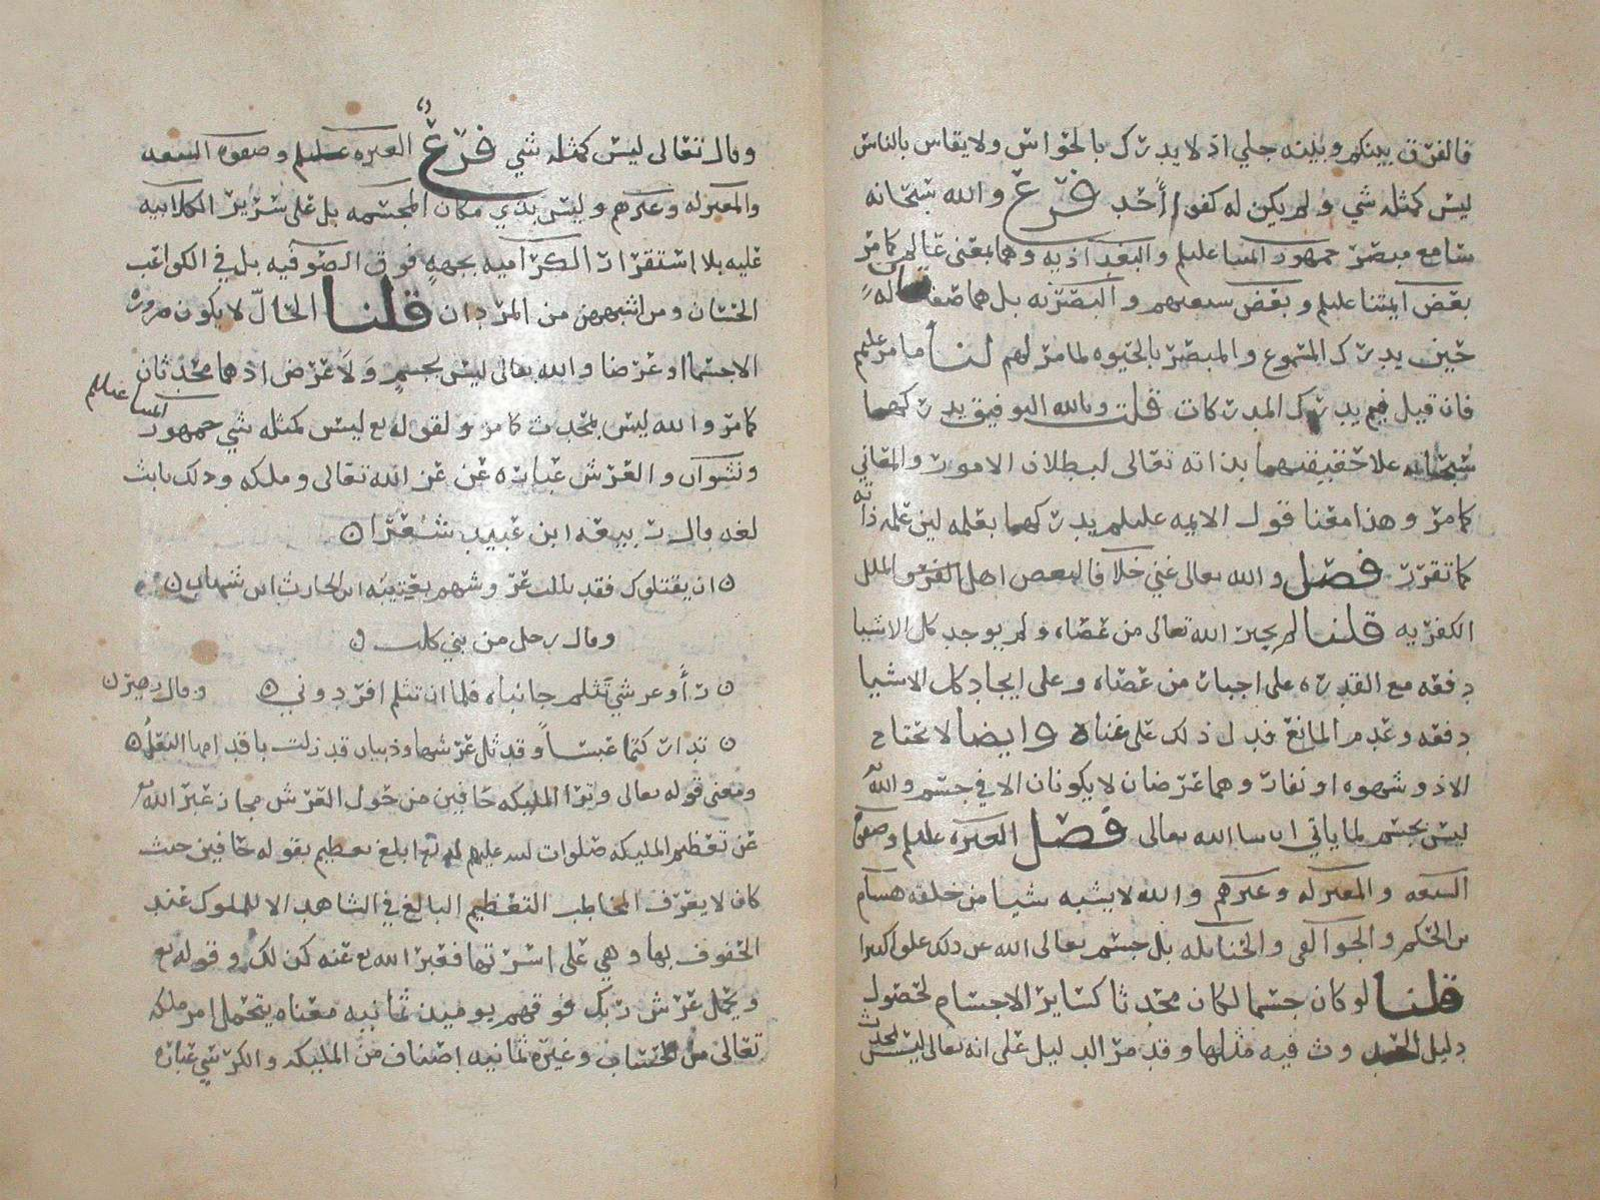 فالفرق بينكم وبينه جلي اذ لا يدرك بالحواس ولا يقاس بالناس
ليس كمثله شي ولم يكن له كفوا احد فرع والله سبحانه
سامع مبصر جمهور ايمتنا عليلم والبغداذيه وهما بمعنى عالم كما مر
بعض ايمتنا عليلم وبعض شيعتهم والبصريه بل هما صفة له
حين يدرك المسموع والمبصر بالحيوه لما مر لهم لنا ما مر عليهم
فان قيل فبم يدرك المدركات قلت وبالله التوفيق يدركهما
سبحانه علا حقيقتهما بذاته تعالى لبطلان الامور والمعاني
كما مر وهذا معنا قول الايمه عليلم يدركهما بعلمه لين علمه ذاته
كما تقرر فصل والله تعالى غني خلافا لبعض اهل الفرق والملل
الكفريه قلنا لم يجبر الله تعالى من عصاه ولم يوجد كل الاشيا
دفعه مع القدره على اجبار من عصاه وعلى ايجاد كل الاشيا
دفعه وعدم المانع فدل ذلك على غناه وايضا لا يحتاج
الا ذو شهوه او نفار وهما عرضان لا يكونان الا في جسم والله
ليس بجسم لما ياتي ان شا الله تعالى فصل العتره عليلم وصفوة
الشيعه والمعتزله وغيرهم والله لا يشبه شيا من خلقه هشام
بن الحكم والجوالقي والحنابله بل جسم تعالى الله عن ذلك علوا كبيرا
قلنا لو كان جسما لكان محدثا كساير الاجسام لحصول
دليل الحدوث فيه مثلها وقد مر الدليل على انه تعالى ليس بمحدث
وقال تعالى ليس كمثله شي فرع العتره عليلم وصفوة الشيعه
والمعتزله وغيرهم وليس بذي مكان المجسمه بل على سرير الكلابيه
عليه بلا استقرار الكراميه بجهه فوق الصوفيه بل في الكواعب
الحسان ومن اشبههن من المردان قلنا الحال لا يكون ضرورة
الا جسما او عرضا والله تعالى ليس بجسم ولا عرض اذ هما محدثان
كما مر والله ليس بمحدث كما مر ولقوله تع ليس كمثله شي جمهور ايمتنا عليلم
ونشوان والعرش عباره عن عز الله تعالى وملكه وذلك ثابت
لغه قال ربيعه ابن عبيد شعرا
ان يقتلوك فقد ثللت عروشهم بعتيبه ابن الحارث ابن شهاب
وقال رجل من بني كلب
راوا عرشي تثلم جانباه فلما ان تثلم افردوني وقال زهير
تداركتما عبسا وقد ثل عرشها وذبيان قد زلت باقدامها النعل
ومعنى قوله تعالى وترا المليكه حافين من حول العرش مجاز عبر الله
عن تعظيم المليكه صلوات الله عليهم له تعا ابلغ تعظيم بقوله حافين حيث
كان لا يعرف المخاطب التعظيم البالغ في الشاهد الا للملوك عند
الحفوف بها وهي على اسرتها فعبر الله تع عنه كذلك وقوله تع
ويحمل عرش ربك فوقهم يوميذ ثمانيه معناه يتحمل امر ملكه
تعالى من الحساب وغيره ثمانيه اصناف من المليكه والكرسي عباره